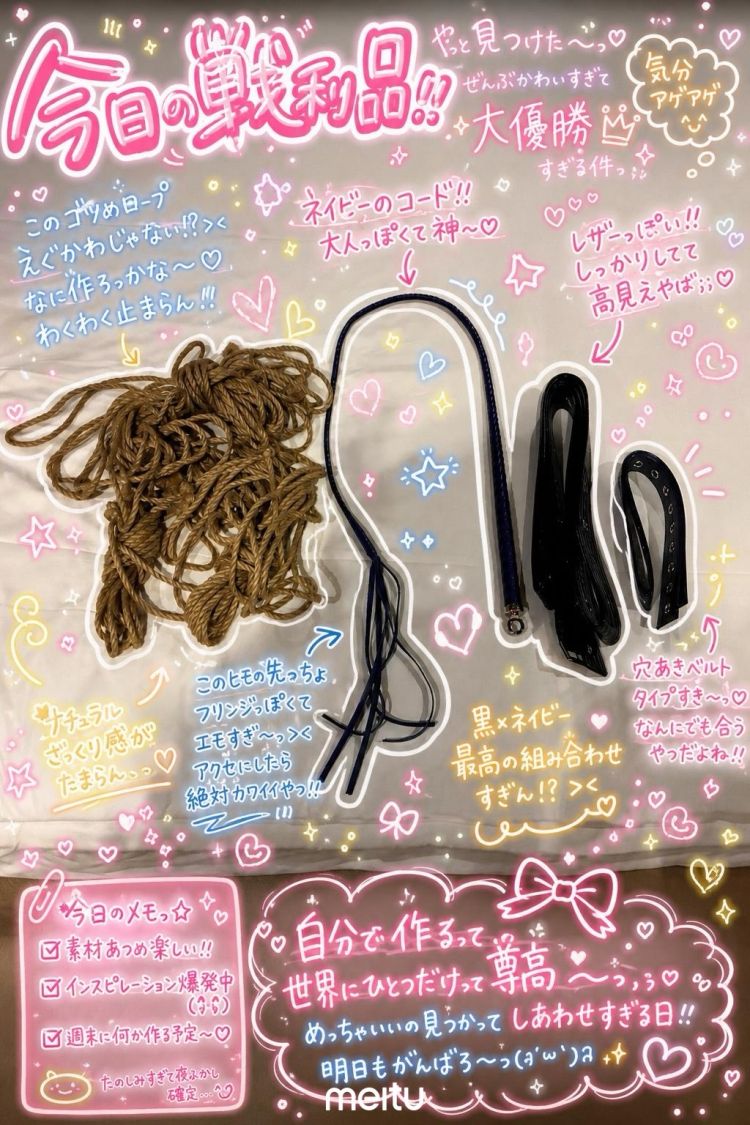 今日の戦利品!!
やっと見つけた〜っ♡
ぜんぶかわいすぎて
大優勝
すぎる件っ
気分
アゲアゲ
このゴツめロープ
えぐかわじゃない!?><
なに作ろっかな〜♡
わくわく止まらん!!!
ネイビーのコード!!
大人っぽくて神〜♡
レザーっぽい!!
しっかりしてて
高見えやば;;♡
ナチュラル
ざっくり感が
たまらん、、♡
このヒモの先っちょ
フリンジっぽくて
エモすぎ〜っ><
アクセにしたら
絶対カワイイやつ!!
黒×ネイビー
最高の組み合わせ
すぎん!?><♡
穴あきベルト
タイプすき〜っ♡
なんにでも合う
やつだよね!!
今日のメモっ☆
☑素材あつめ楽しい!!
☑インスピレーション爆発中
☑週末に何か作る予定〜♡
たのしみすぎて夜ふかし
確定…
自分で作るって
世界にひとつだけって尊高〜っ,,♡
めっちゃいいの見つかってしあわせすぎる日!!
明日もがんばろ〜っ(๑´ω`)ว
meitu